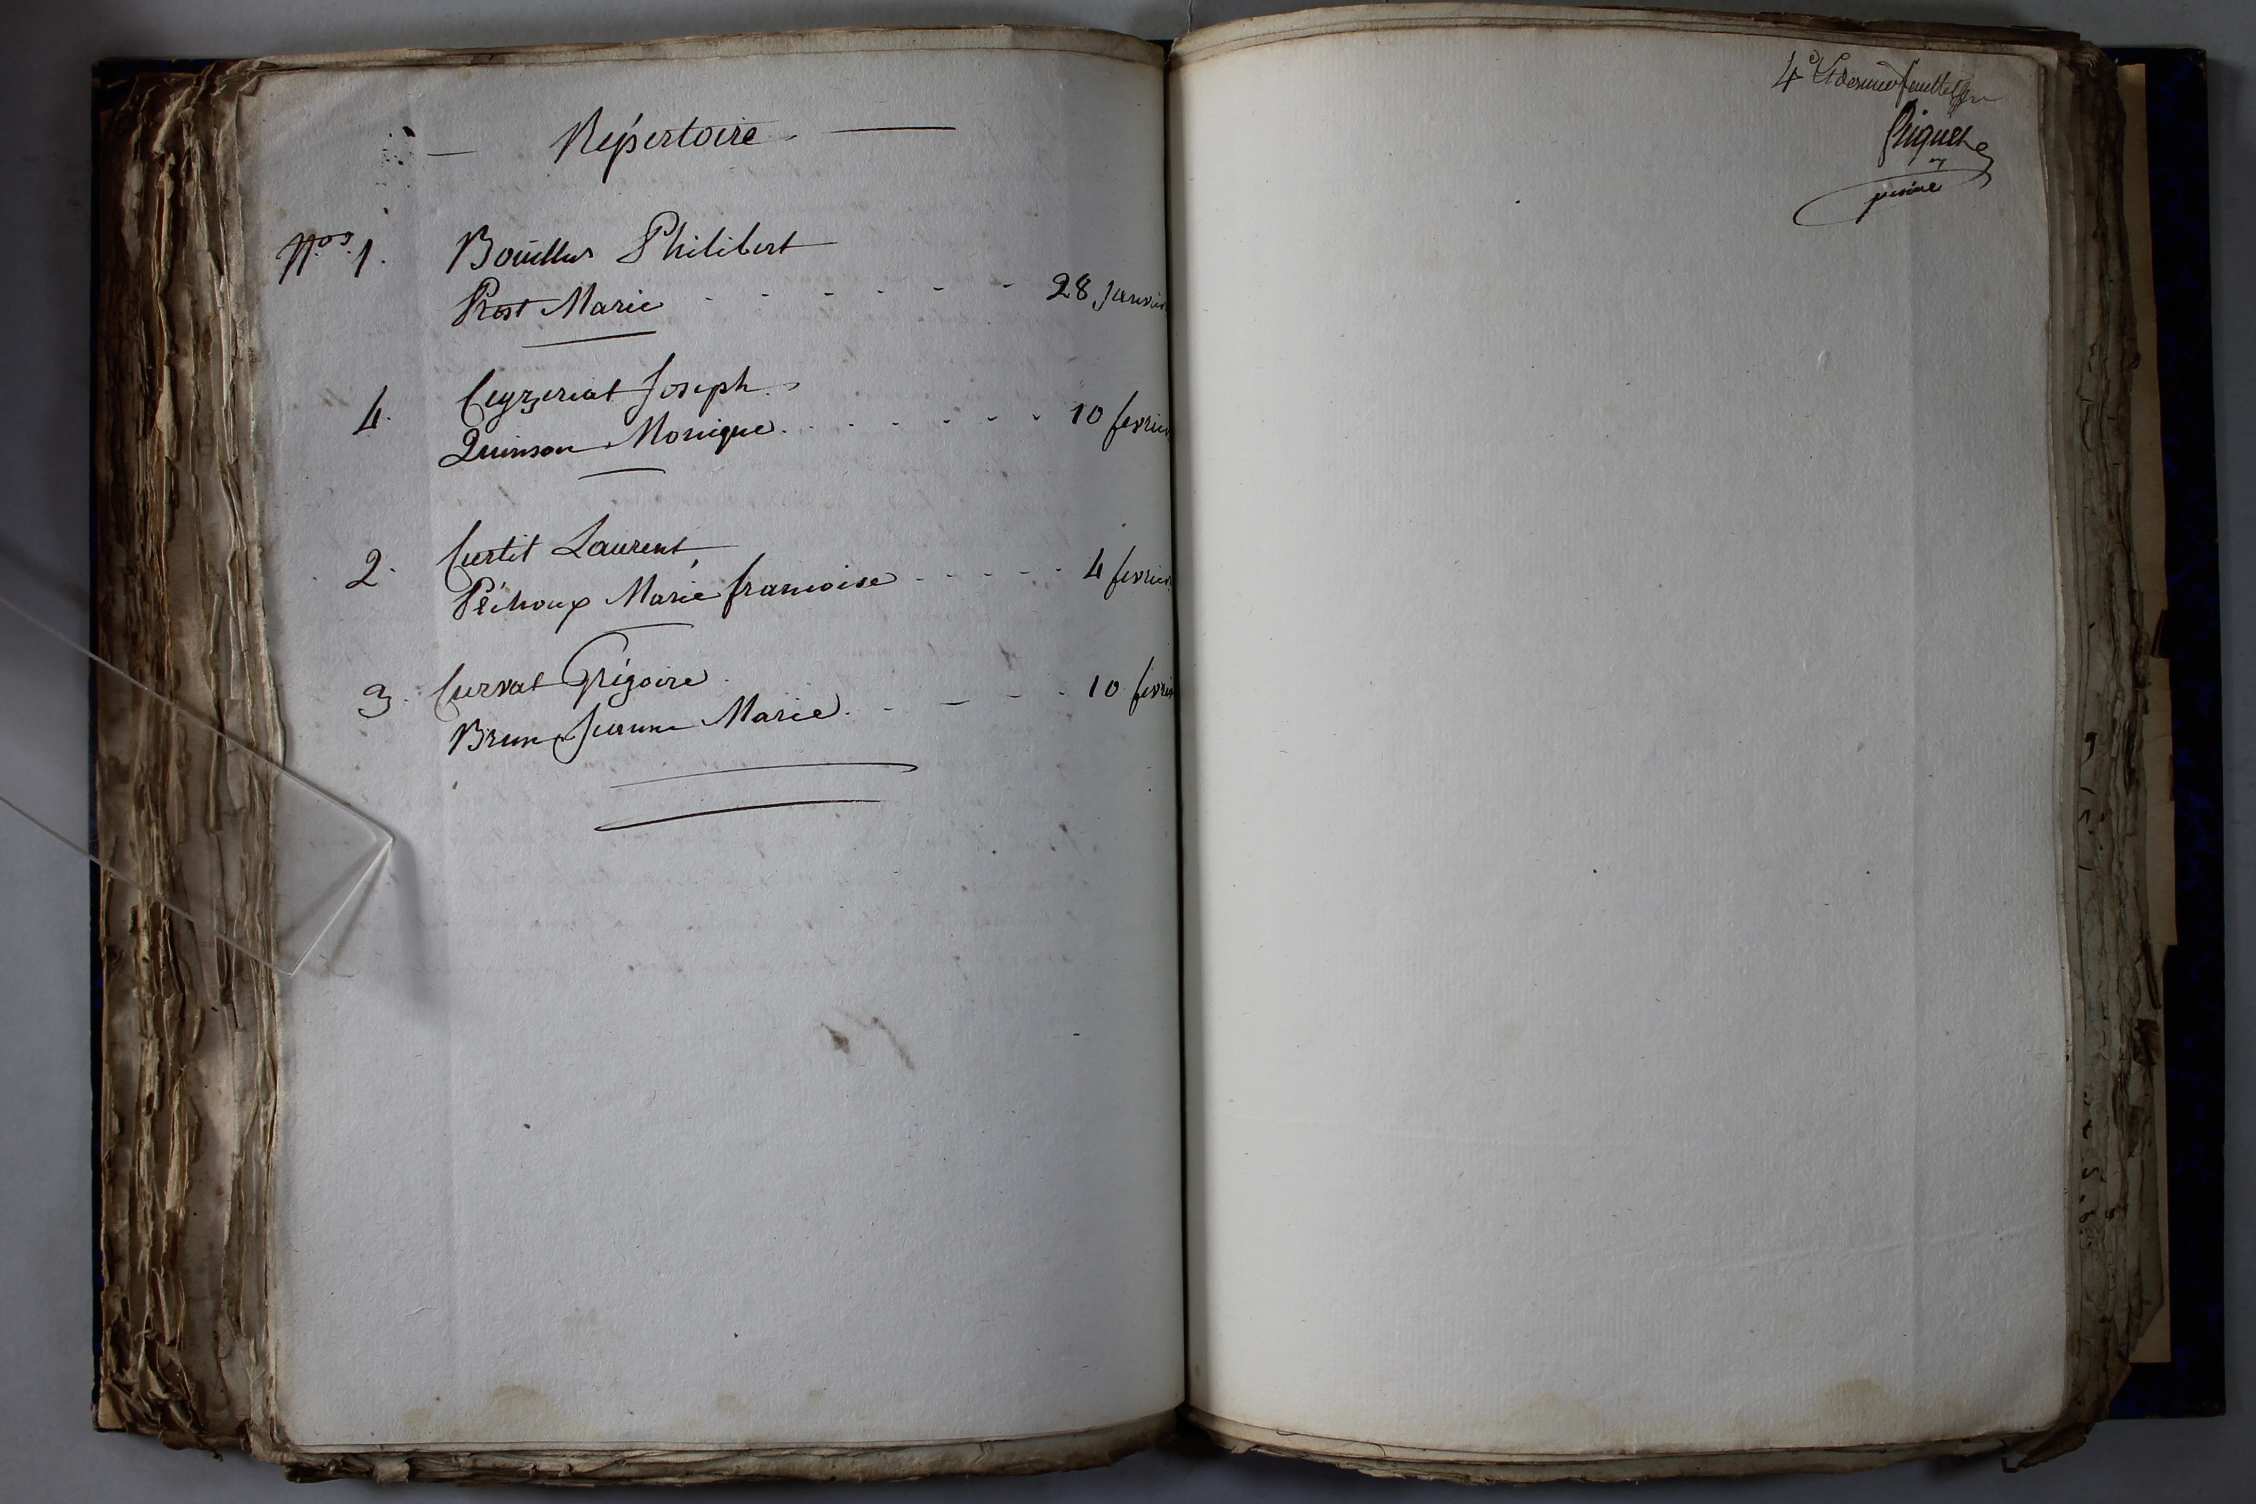 Répertoire
Nos 1. Bouillus Philibert
Prost Marie - - - - - - 28 Janvier
4. Ceyzeriat Joseph
Quinson Monique - - - - - - 10 fevrier
2. Curtit Laurent
Péchoux Marie francoise - - - - - 4 fevrier
3. Curvat Grégoire
Brun Jeanne Marie - - - - 10 fevrier
4e Et dernier feuillet